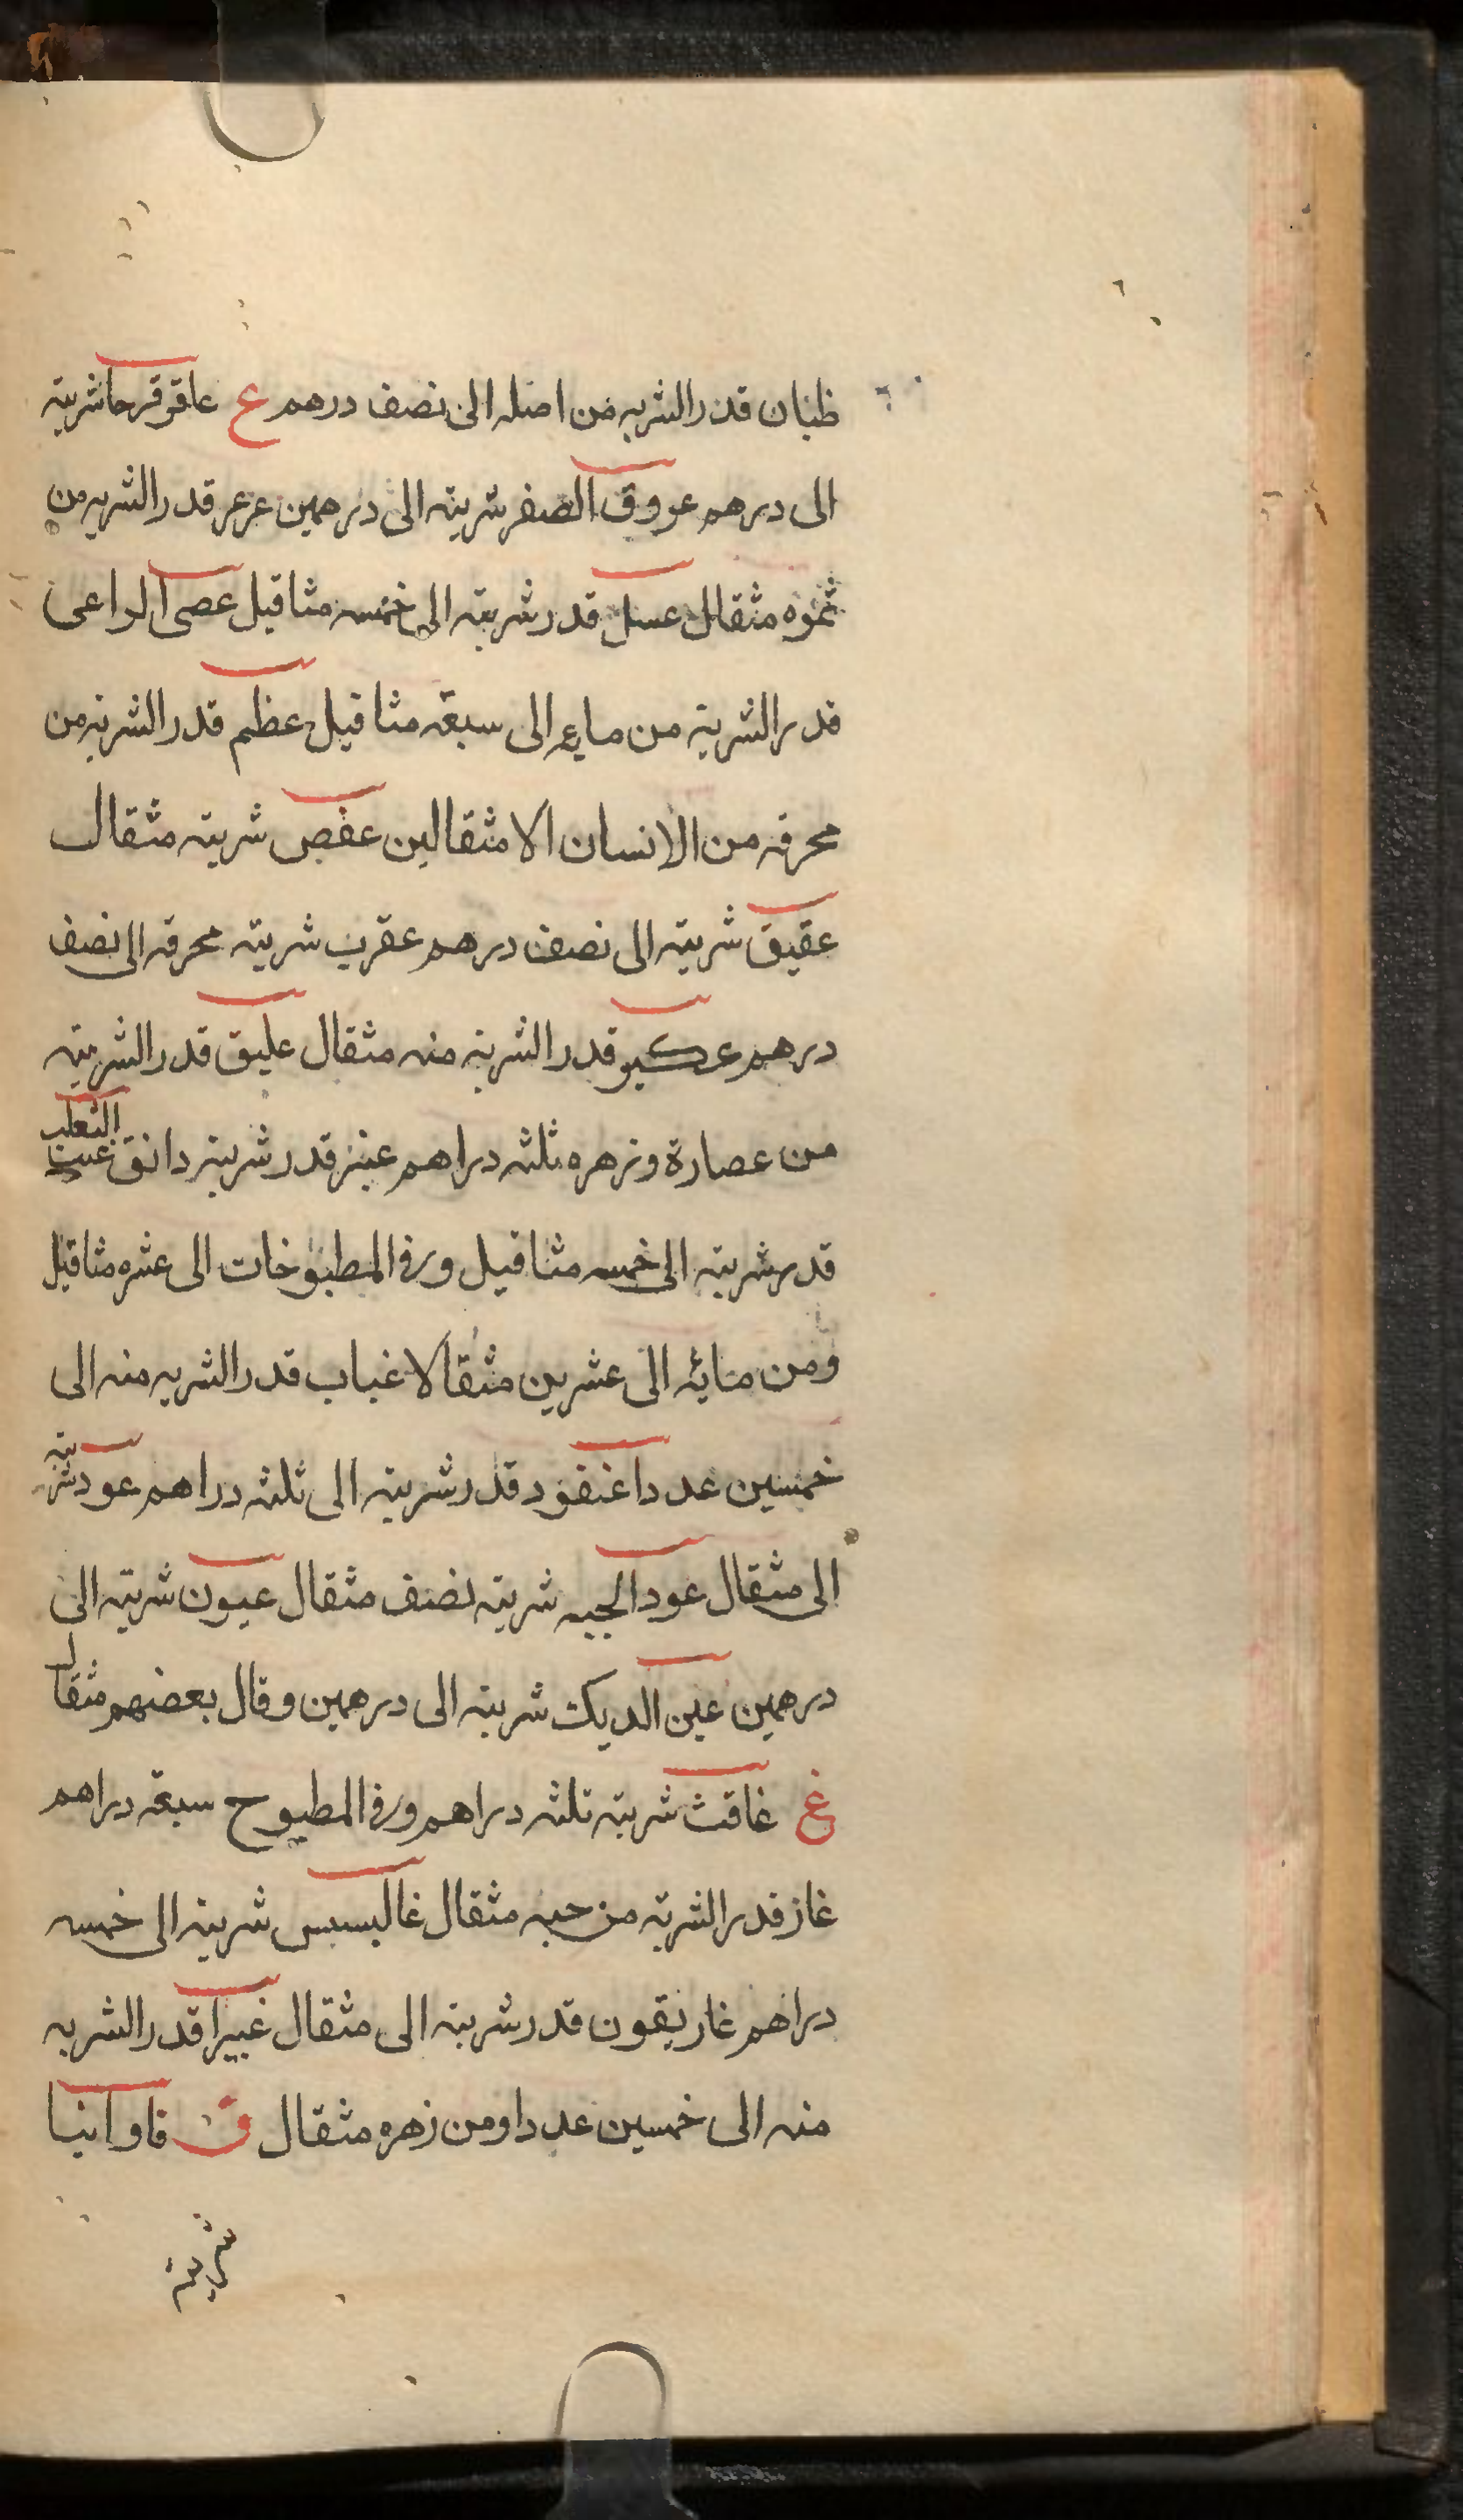 ظنان قدر الشربه من اصله الى نصف درهم ع عاقوقرحا شربته
الى درهم عروق الصفر شربته الى درهمين عرعر قدر الشربه من
ثمره مثقال عسل قدر شربته الى خمسه مثاقيل عصى الراعى
قدر الشربته من مايه الى سبعة مثاقيل عظم قدر الشربته من
محرقه من الانسان الا مثقالين عفص شربته مثقال
عقيق شربته الى نصف درهم عقرب شربته محرقه الى نصف
درهم قدر الشربته منه مثقال عليق قدر الشربته
من عصارة وزهره ثلثه دراهم عنبر قدر شربته دانق عنب الثعلب
قدر شربته الى خمسه مثاقيل وفى المطبوخات الى عشره مثاقيل
ومن مائه الى عشرين مثقالا عناب قدر الشربه منه الى
خمسين عددا عنقود قدر شربته الى ثلثه دراهم عود شربته
الى مثقال عود الحيه شربته نصف مثقال عيون شربته الى
درهمين عين الديك شربته الى درهمين وقال بعضهم مثقال
غ غافث شربته ثلثه دراهم وفى المطبوح سبعة دراهم
غاز قدر الشربة من حبه مثقال غالبسيس شربته الى خمسه
دراهم غاريقون قدر شربته الى مثقال غبيرا قدر الشربه
منه الى خمسين عددا ومن زهره مثقال ف فاوانيا
شربته